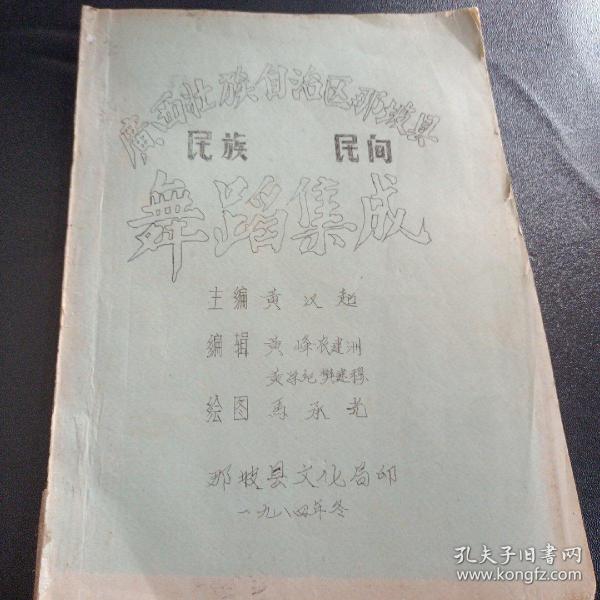 廣西壮族自治区那坡县
民族 民间
舞蹈集成
主编 黄汉超
编辑 黄峰 农建洲
黄荣纪 樊建穆
绘图 马承光
那坡县文化局印
一九八四年冬
孔夫子旧书网
www.kongfz.com